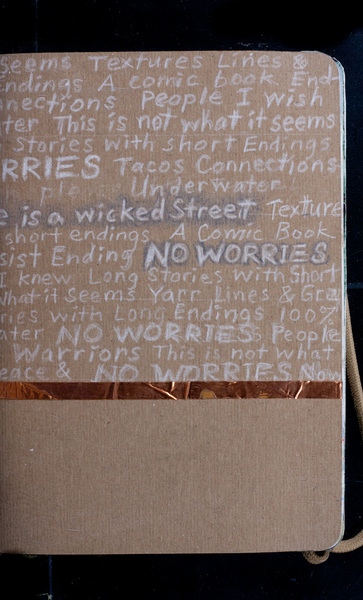 Seems Textures Lines &
Endings A comic book End-
nnections People I wish
ter This is not what it seems
stories with short Endings
RRIES Tacos Connections
plo Underwater
e is a wicked Street Texture
short endings A Comic Book
sist Ending NO WORRIES
I knew Long Stories With Short
What it Seems Yarr Lines & Gra
ries with Long Endings 100%
ater NO WORRIES People
Warriors This is not what
eace & NO WORRIES Now